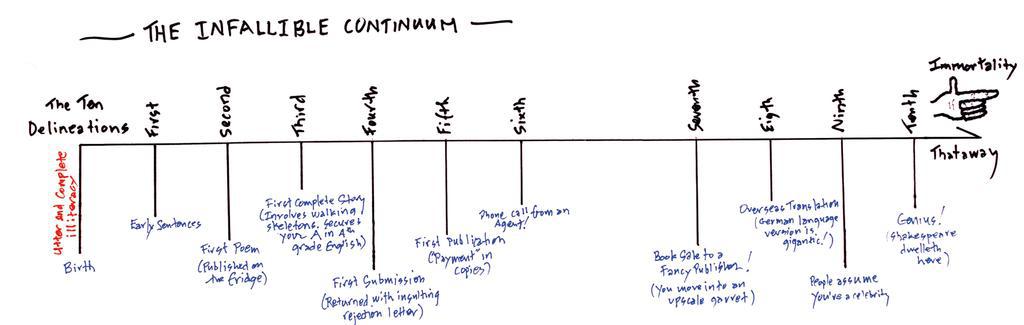 THE INFALLIBLE CONTINUUM
The Ten
Delineations
First
Second
Third
Fourth
Fifth
Sixth
Seventh
Eigth
Ninth
Tenth
Immortality
Thataway
Utter and Complete
illiteracy
Birth
Early Sentences
First Poem
(Published on
the Fridge)
First Complete Story
(Involves walking
skeletons. Secures
your A in 4th
grade English)
First Submission
(Returned with insulting
rejection letter)
First Publication
("Payment" in
copies)
Phone call from an
Agent!
Book Sale to a
Fancy Publisher!
(You move into an
upscale garret)
Overseas Translation
(German language
version is
gigantic!)
People assume
you're a celebrity
Genius!
(Shakespeare
dwelleth
here)